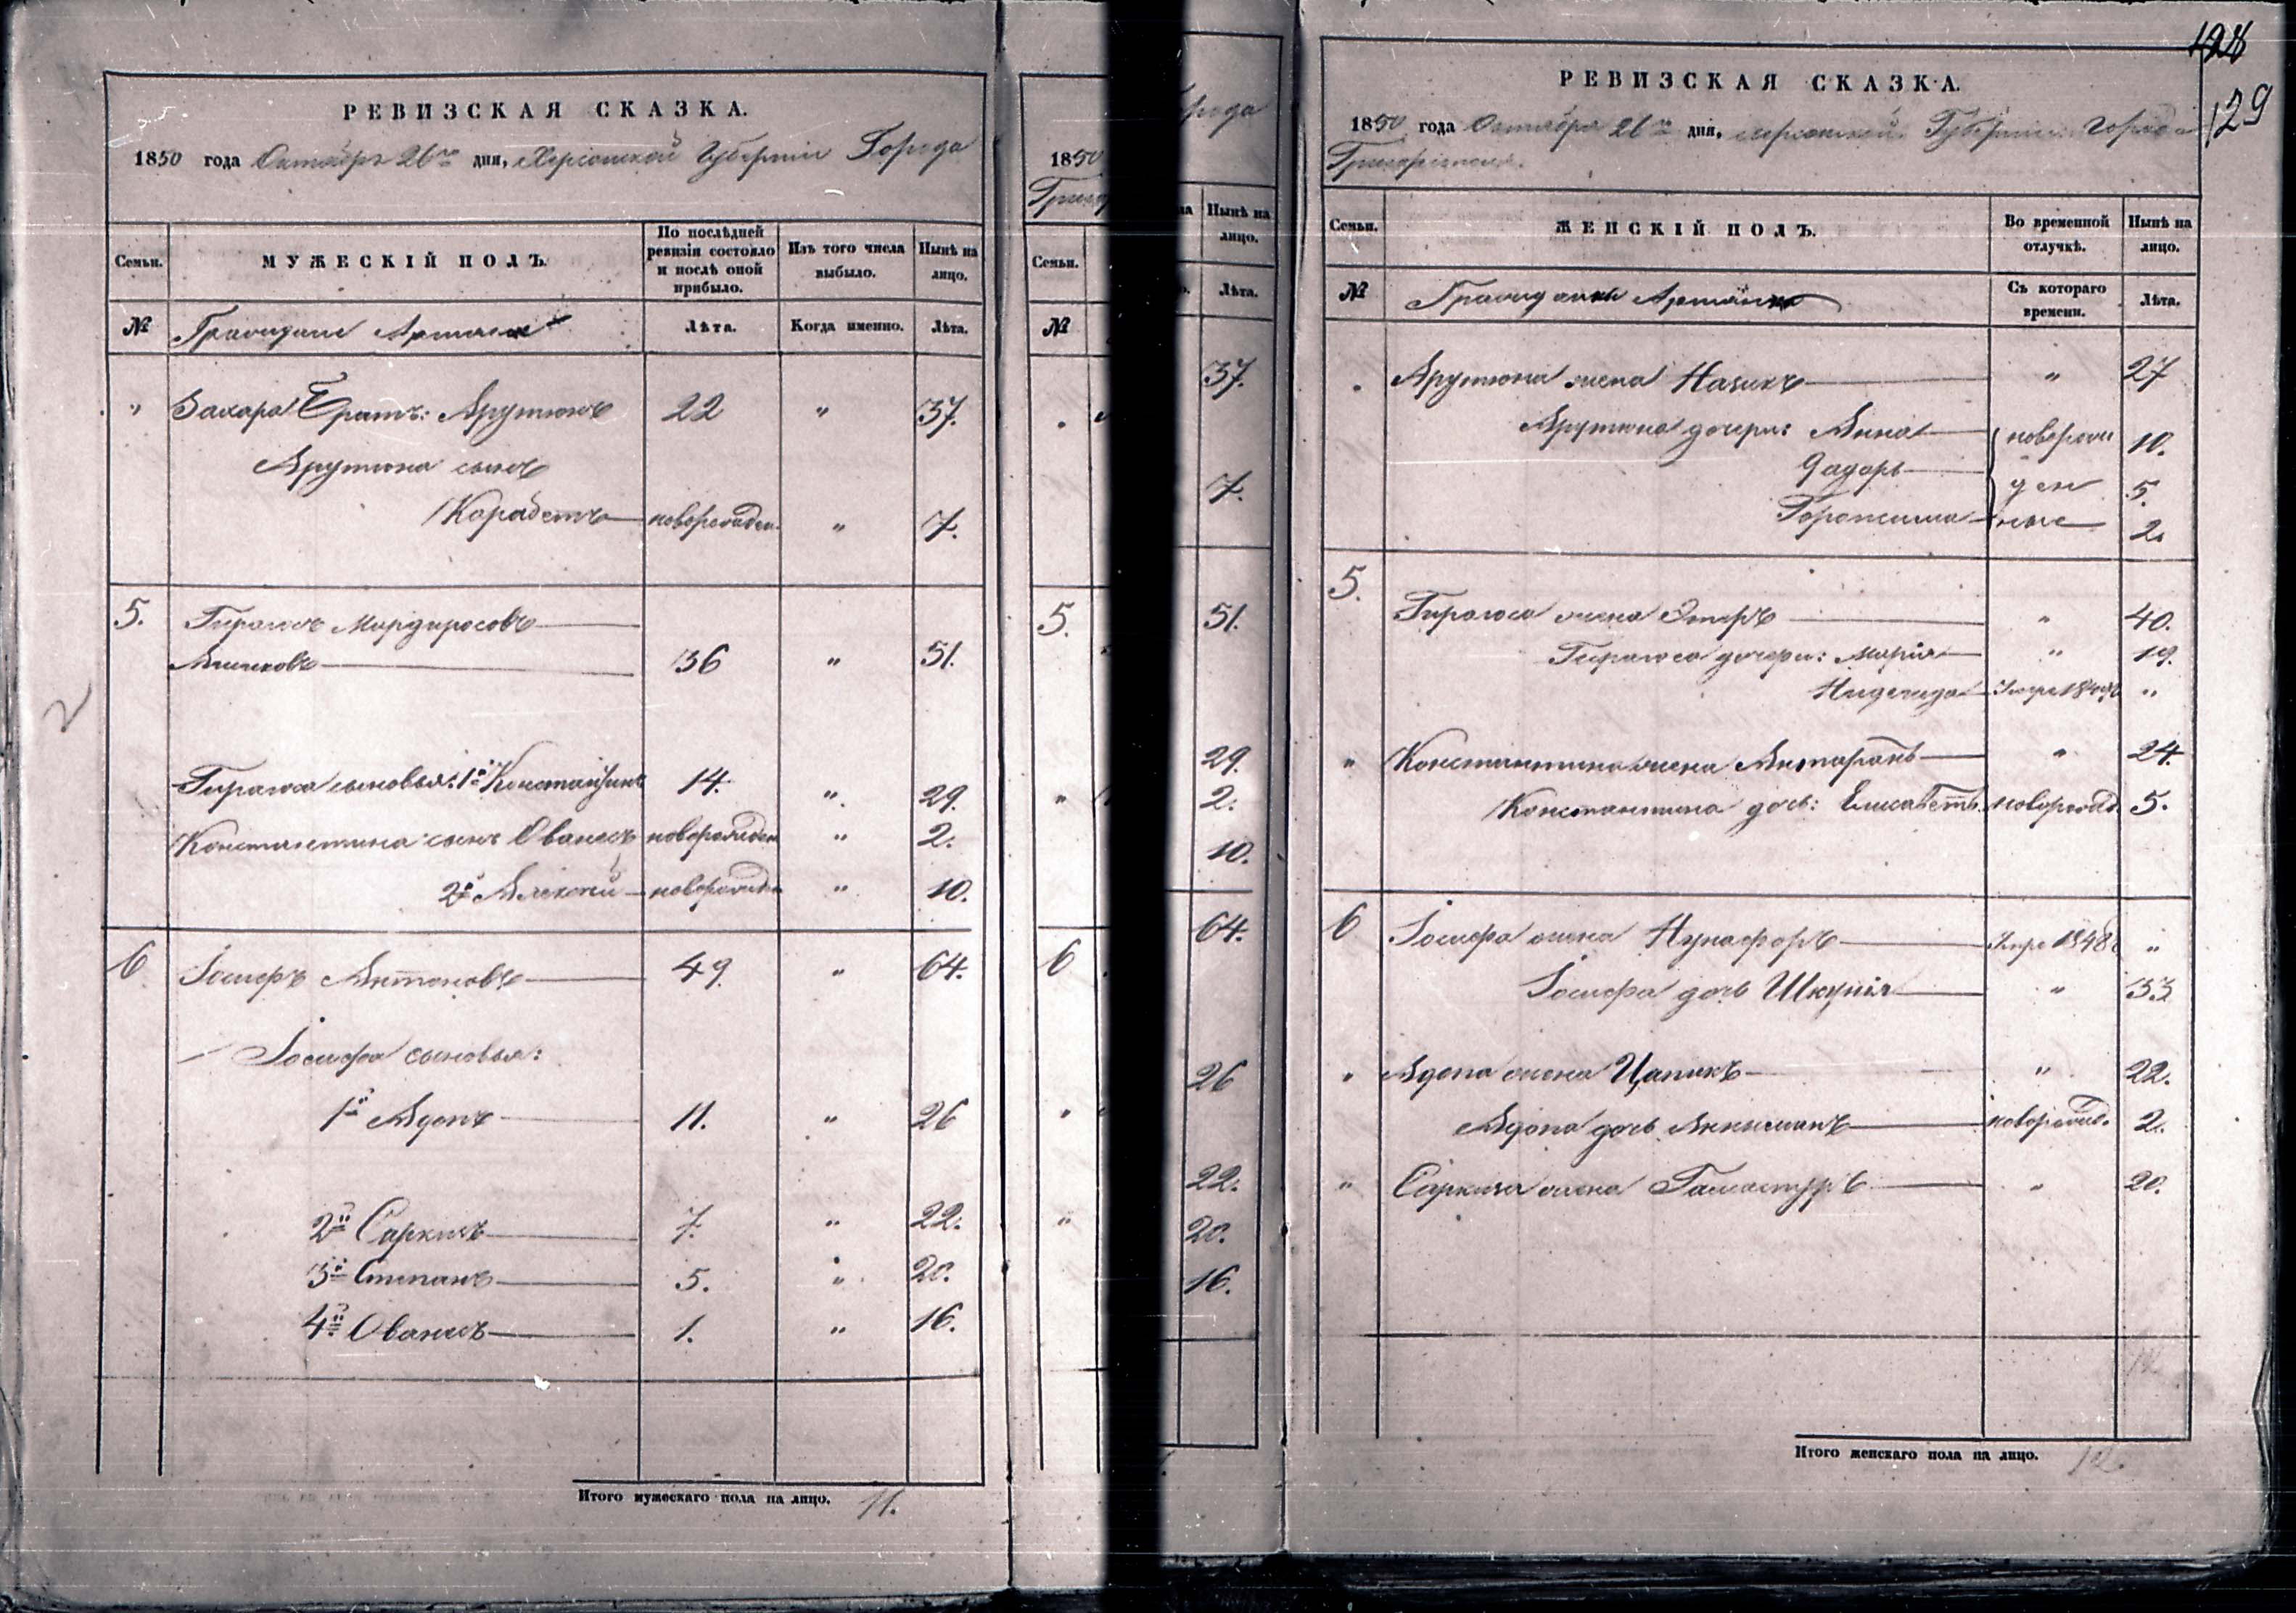 РЕВИЗСКАЯ СКАЗКА.
1850 года Октября 26го дня, Херсонской Губерніи Города
Семьи.
МУЖЕСКІЙ ПОЛЪ.
По послѣдней ревизіи состояло и послѣ оной прибыло.
Изъ того числа выбыло.
Нынѣ на лицо.
№
Граждане Армяне
Лѣта.
Когда именно.
Лѣта.
" Захара Братъ: Арутюнъ 22 " 37.
Арутюна сынъ
Карабетъ новорожден. " 7.
5. Гирагосъ Мардиросовъ
36 " 51.
Гирагоса сыновья: 1й Константинъ 14. " 29.
Константина сынъ Ованесъ новорожден " 2.
2й Алексей новорожден " 10.
6 Іосифъ Антоновъ 49. " 64.
Іосифа сыновья:
1й Адопъ 11. " 26
2й Саркисъ 7. " 22.
3й Степанъ 5. " 20.
4й Ованесъ 1. " 16.
Итого мужескаго пола на лицо. 11.
2
1850
Григ
Семьи.
№
5.
6
орода
на
Нынѣ на лицо.
Лѣта.
37.
7.
51.
29.
2.
10.
64.
26
22.
20.
16.
128
129
РЕВИЗСКАЯ СКАЗКА.
1850 года Октября 26го дня, Херсонской Губерніи Города
Григоріополя.
Семьи.
ЖЕНСКІЙ ПОЛЪ.
Во временной отлучкѣ.
Нынѣ на лицо.
№
Гражданки Армянки
Съ котораго времени.
Лѣта.
Арутюна жена Назикъ " 27
Арутюна дочери: Анна новорож 10.
ден 5.
ные 2.
5.
Гирагоса жена Эстеръ " 40.
Гирагоса дочери: Марія " 19.
"
" Константина жена Антарамъ " 24.
Константина дочь: Елисаветъ новорожд. 5.
6 Іосифа жена " 
Іосифа дочь Шкунія " 33
" Адопа жена Цапикъ " 22.
Адопа дочь новорожд. 2.
" Саркиса жена " 20.
Итого женскаго пола на лицо. 12.